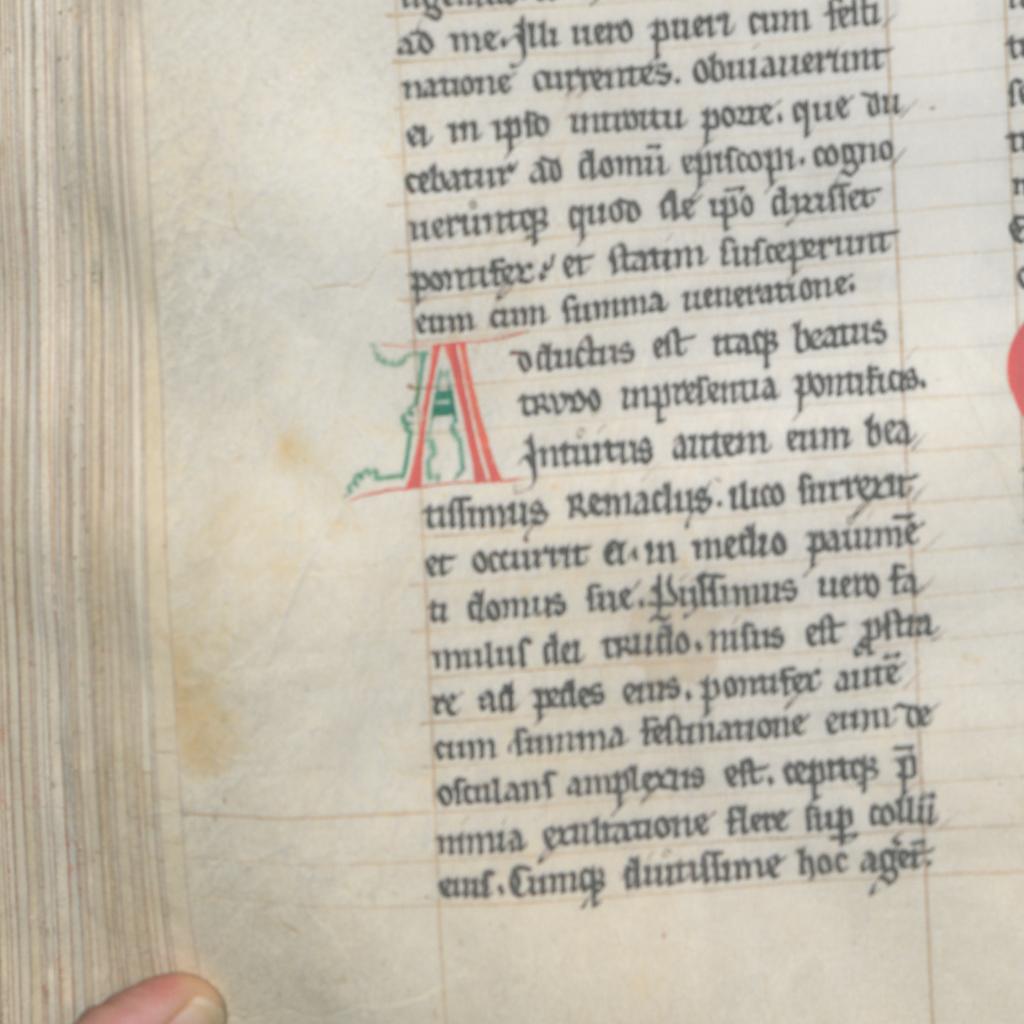 ad me. Illi uero pueri cum festi
natione currentes. obuiauerunt
ei in ipso introitu porte. que du
cebatur ad domū episcopi. cogno
uerūntqꝫ quod de ip̄o dixisset
pontifex. et statim susceperunt
eum cum summa ueneratione.
Adductus est itaqꝫ beatus
trudo inpresentia pontificis.
Intuitus autem eum bea
tissimus Remaclus. ilico surrexit
et occurrit ei. in medio pauimē
ti domus sue. Piissimus uero fa
mulus dei trudo. nisus est ꝓstra
re ad pedes eius. pontifex autē
cum summa festinatione eum de
osculans amplexus est. cepitqꝫ p̄
nimia exultatione flere suꝑ collū
eius. Cumqꝫ diutissime hoc ager̄.